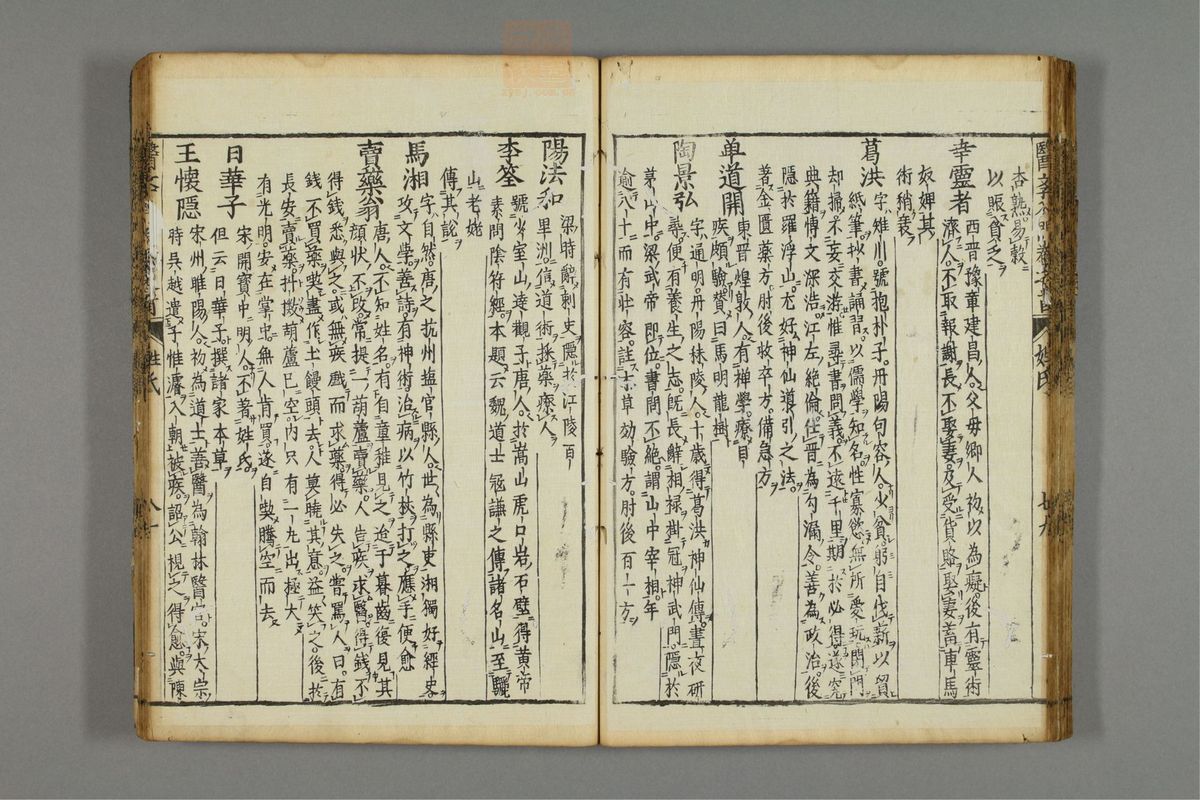 杏熟易穀
以賑貧乏
幸靈者
西晉豫章建昌人父母鄉人初以為癡後有靈術
濟人不取報謝長不娶妻及受貨賂娶妻畜車馬
奴婢其
術稍衰
葛洪
字雉川號抱朴子丹陽句容人少貧躬自伐薪以貿
紙筆抄書誦習以儒學知名性寡慾無所愛玩閉門
却掃不妄交遊惟尋書問義不遠千里期於必得遂究
典籍博文深浩江左絶倫仕晉為勾漏令善為政治後
隱於羅浮山尤好神仙導引之法
著金匱藥方肘後救卒方備急方
单道開
東晉煌敦人有禅學療目
疾頗驗賛曰馬明龍樹
陶景弘
字通明丹陽秣陵人十歲得葛洪神仙傳晝夜研
尋便有養生之志既長觧相禄掛冠神武門隱於
茅山中梁武帝即位書問不絶謂山中宰相年
逾八十而有壮容註本草効驗方肘後百一方
姓氏
陽法和
梁時辭刺史隱於江陵百
里洲信道術採藥療人
李筌
號少室山逵觀子唐人於嵩山虎口岩石壁得黄帝
素問陰符經本題云魏道士冦謙之傳諸名山至驪
山老姥
傳其說
馬湘
字自然唐之抗州塩官縣人世為縣吏湘獨好經史
攻文學善詩有神術治病以竹杖打之應手便愈
賣藥翁
唐人不知姓名有自童稚見之迨于暮齒復見其
顔状不改常提一葫蘆賣藥人告疾求醫得錢不
得錢悉與之或無疾戲而求藥得必失之甞罵人曰有
錢不買藥喫盡作土饅頭去人莫曉其意益笑之後於
長安賣藥抖擻葫蘆已空内只有一丸出極大
有光明安在掌中無人肯買遂自喫騰空而去
日華子
宋開寳中明人不著姓氏
但云日華子撰諸家本草
王懷隠
宋州睢陽人初為道士善醫為翰林醫官宋太宗
時吳越遣子惟濬入朝被疾詔公視之得愈與陳
姓氏